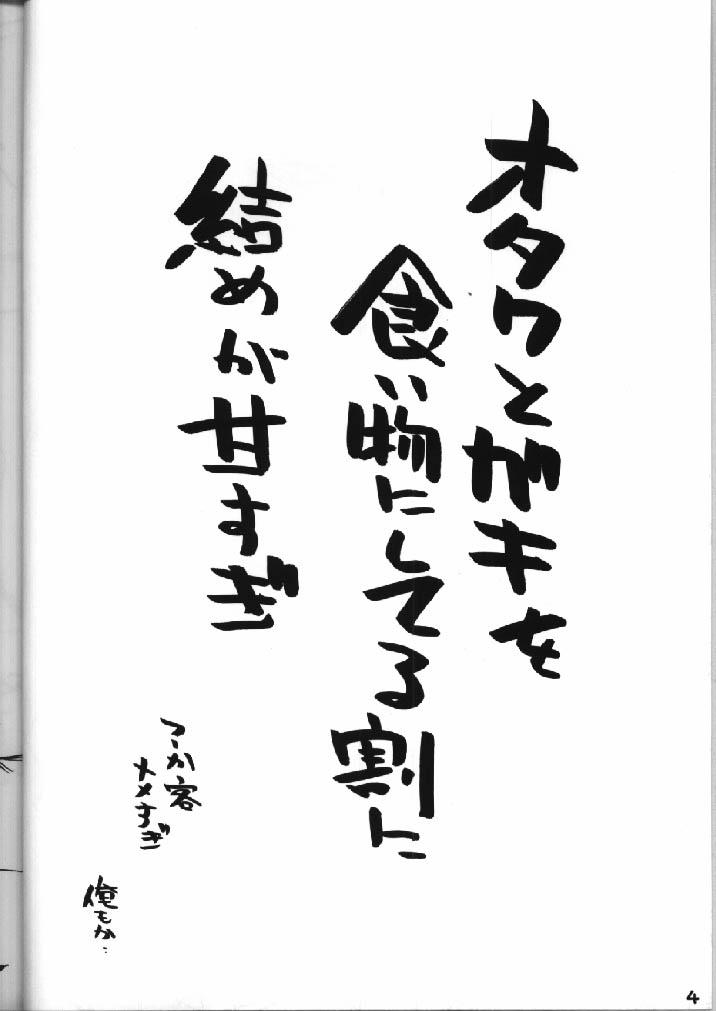 オタクとガキを
食い物にしてる割に
結めが甘すぎ
つーか客
ナメすぎ
俺もか…
4